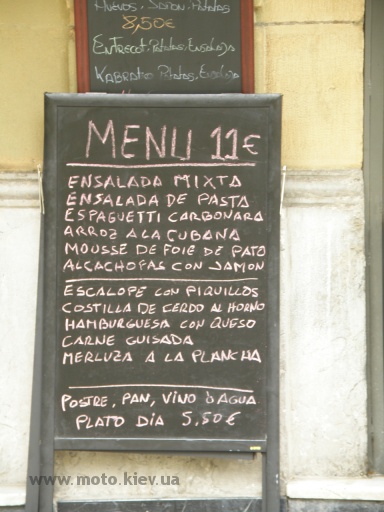 HUEVOS, JAMON, PATATAS
8,50€
ENTRECOT, PATATAS, ENSALADA
PATATAS, ENSALADA
MENU 11€
ENSALADA MIXTA
ENSALADA DE PASTA
ESPAGUETTI CARBONARA
ARROZ A LA CUBANA
MOUSSE DE FOIE DE PATO
ALCACHOFAS CON JAMON
ESCALOPE CON PIQUILLOS
COSTILLA DE CERDO AL HORNO
HAMBURGUESA CON QUESO
CARNE GUISADA
MERLUZA A LA PLANCHA
POSTRE, PAN, VINO o AGUA
PLATO DIA 5,50€
www.moto.kiev.ua